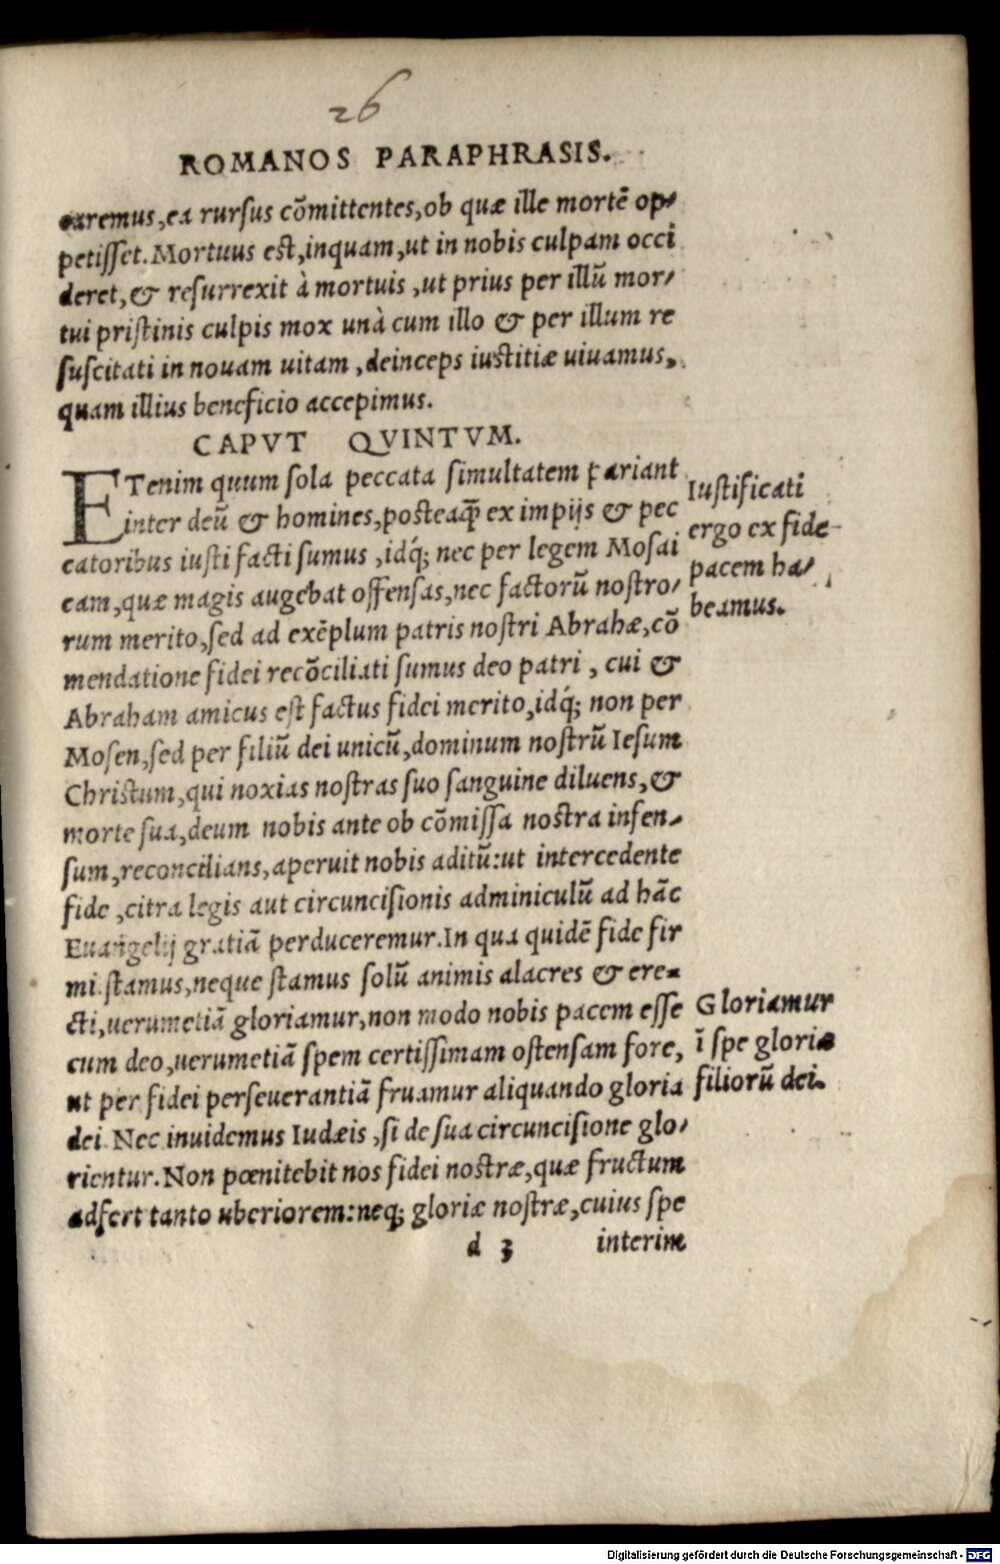 26
ROMANOS PARAPHRASIS.
caremus, ea rursus cõmittentes, ob quæ ille mortẽ op-
petisset. Mortuus est, inquam, ut in nobis culpam occi
deret, & resurrexit à mortuis, ut prius per illũ mor-
tui pristinis culpis mox unà cum illo & per illum re
suscitati in nouam uitam, deinceps iustitiæ uiuamus,
quam illius beneficio accepimus.
CAPVT QVINTVM.
ETenim quum sola peccata simultatem pariant
inter deũ & homines, posteaq̃ ex impijs & pec
catoribus iusti facti sumus, idq́; nec per legem Mosai
cam, quæ magis augebat offensas, nec factorũ nostro-
rum merito, sed ad exẽplum patris nostri Abrahæ, cõ
mendatione fidei recõciliati sumus deo patri, cui &
Abraham amicus est factus fidei merito, idq́; non per
Mosen, sed per filiũ dei unicũ, dominum nostrũ Iesum
Christum, qui noxias nostras suo sanguine diluens, &
morte sua, deum nobis ante ob cõmissa nostra infen-
sum, reconcilians, aperuit nobis aditũ: ut intercedente
fide, citra legis aut circuncisionis adminiculũ ad hãc
Euangelij gratiã perduceremur. In qua quidẽ fide fir
mi stamus, neque stamus solũ animis alacres & ere-
cti, uerumetiã gloriamur, non modo nobis pacem esse
cum deo, uerumetiã spem certissimam ostensam fore,
ut per fidei perseuerantiã fruamur aliquando gloria
dei. Nec inuidemus Iudæis, si de sua circuncisione glo-
rientur. Non pœnitebit nos fidei nostræ, quæ fructum
adfert tanto uberiorem: neq; gloriæ nostræ, cuius spe
d 3 interim
Iustificati
ergo ex fide
pacem ha-
beamus.
Gloriamur
ĩ spe gloriæ
filiorũ dei.
Digitalisierung gefördert durch die Deutsche Forschungsgemeinschaft - DFG